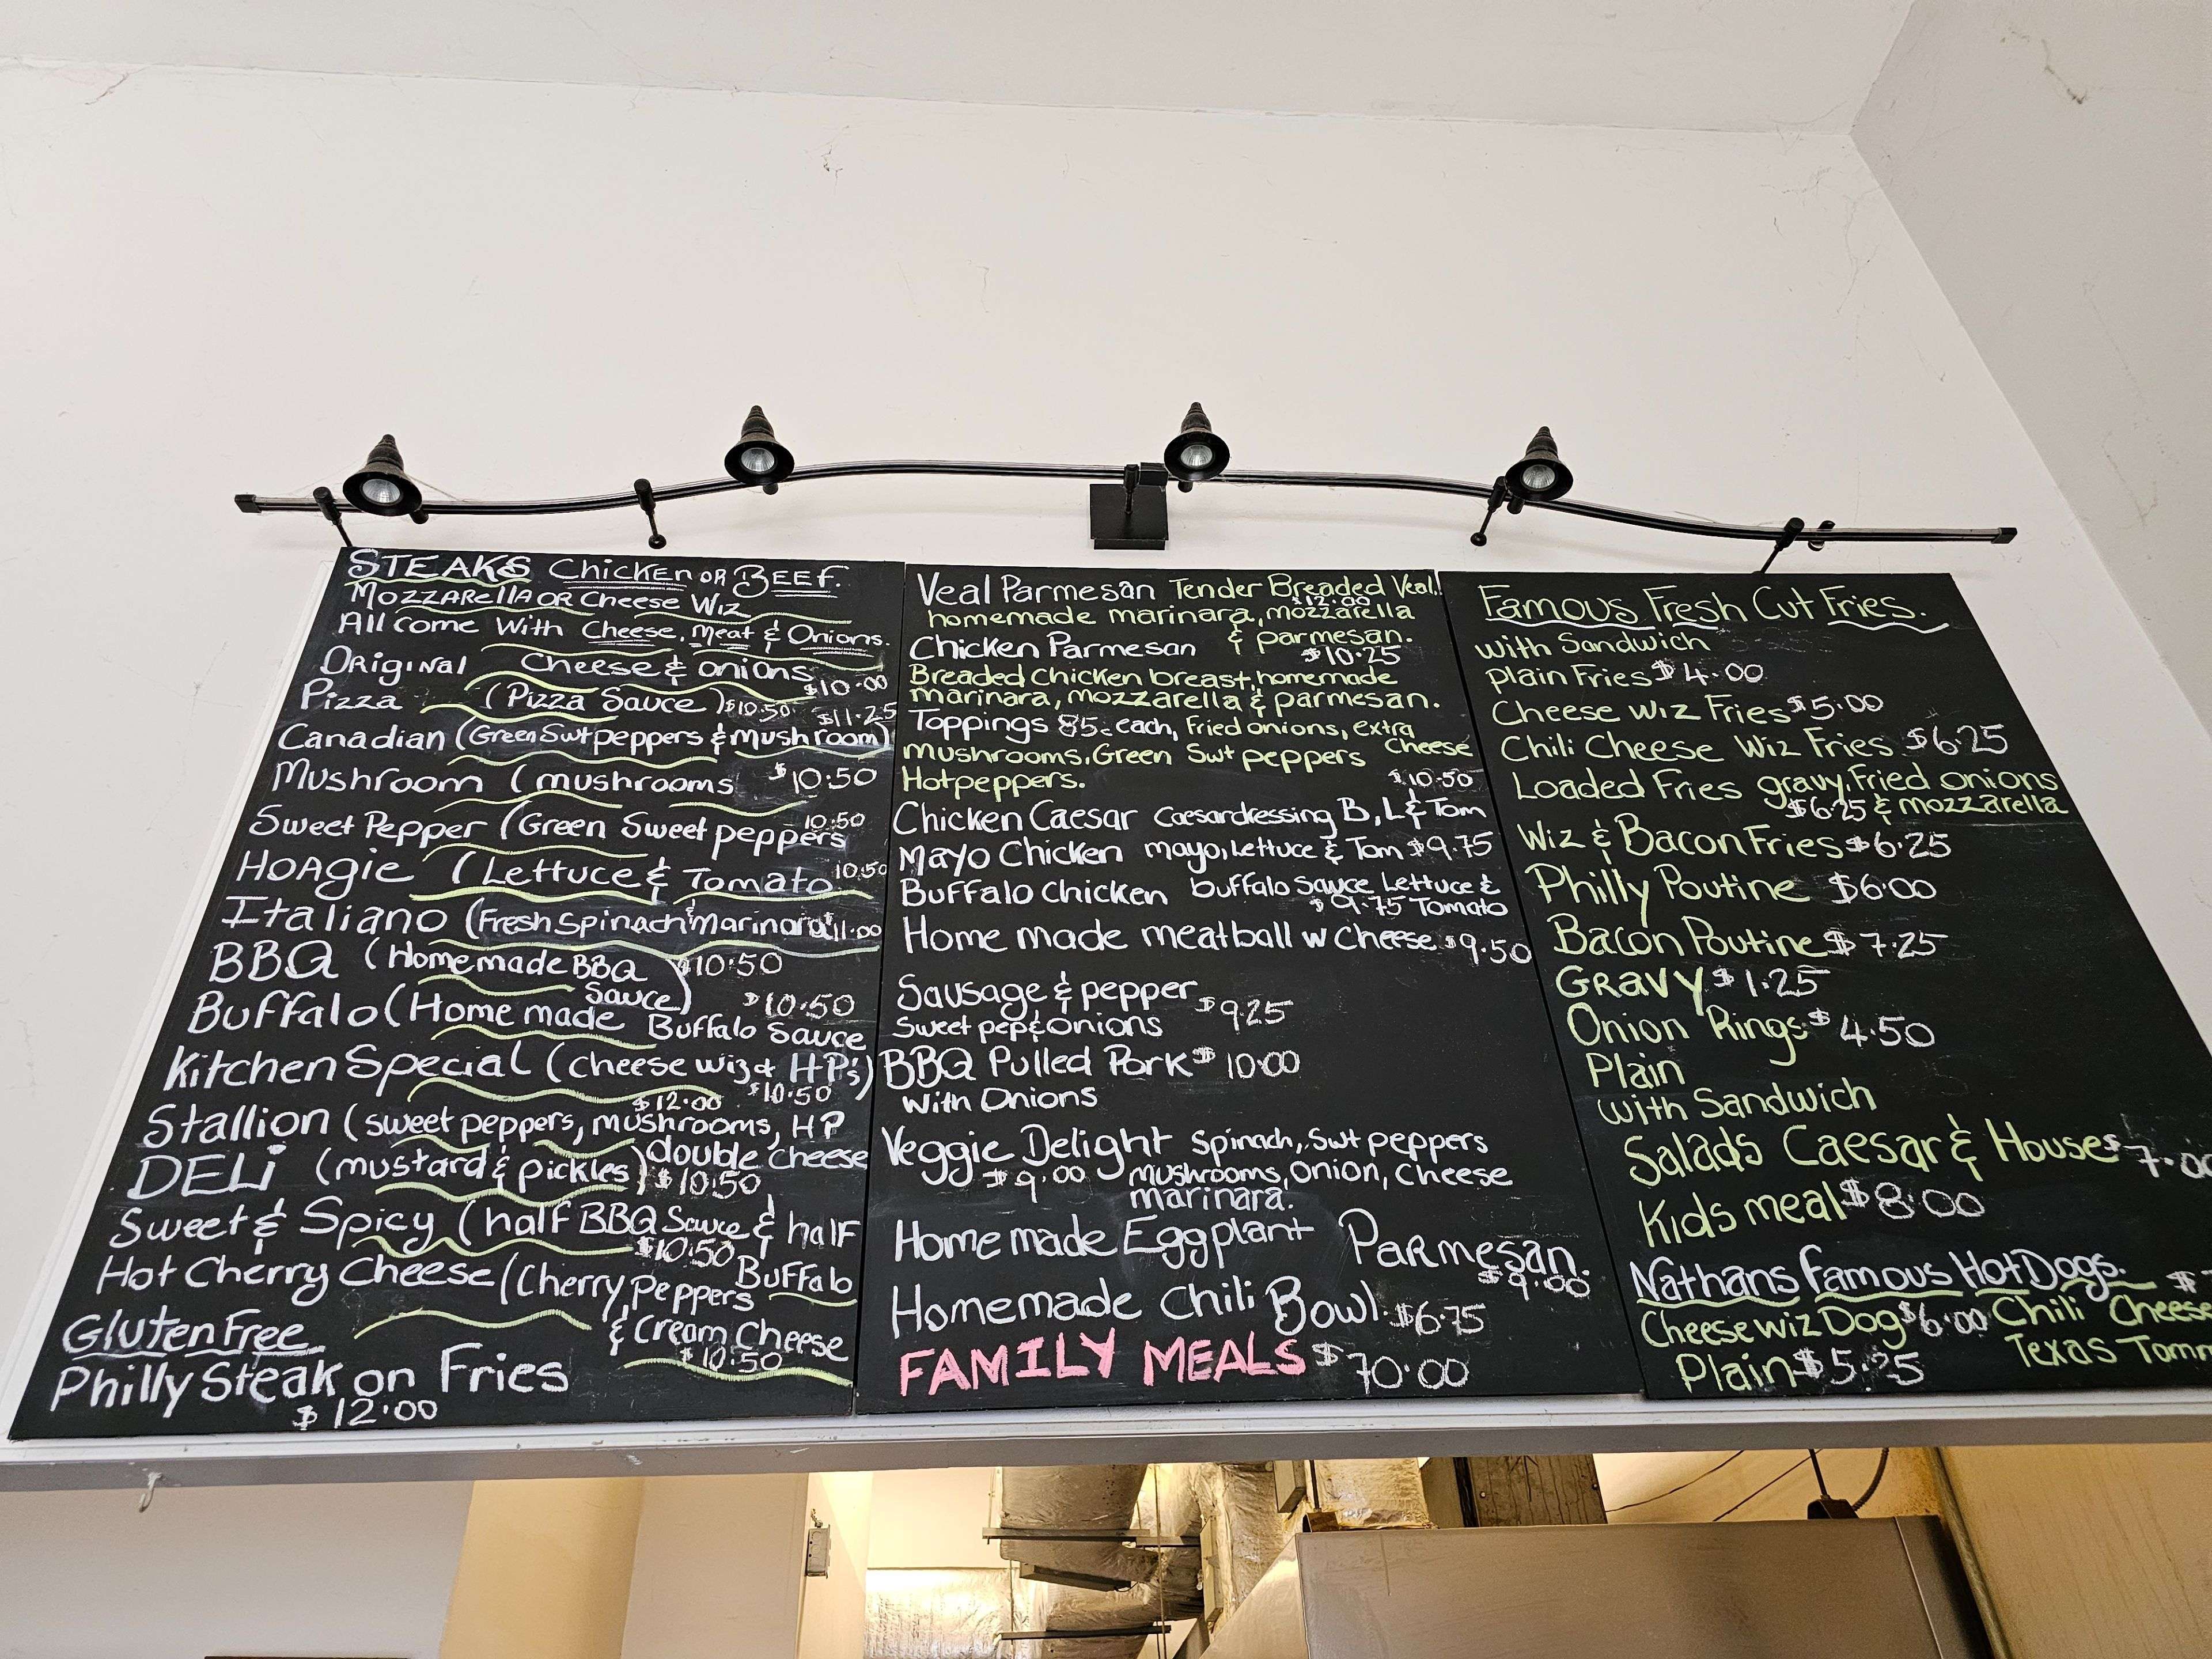 STEAKS Chicken OR BEEF.
MOZZARella OR Cheese Wiz
All come With Cheese, Meat & Onions.
Original Cheese & onions
$10.00
Pizza (Pizza Sauce) $10.50 $11.25
Canadian (Green Swt peppers & Mushroom)
Mushroom (mushrooms $10.50
10.50
Sweet Pepper (Green Sweet peppers
HOAgie (Lettuce & Tomato 10.50
Italiano (Fresh Spinach & Marinara 11.00
BBQ (Homemade BBQ $10.50
Sauce)
$10.50
Buffalo (Home made Buffalo Sauce
Kitchen Special (cheese wiz & HP's)
$12.00 $10.50
Stallion (sweet peppers, mushrooms, HP
double cheese
DELi (mustard & pickles) $10.50
Sweet & Spicy (half BBQ Sauce & half
$10.50 Buffalo
Hot Cherry Cheese (Cherry peppers
& Cream Cheese
$10.50
Gluten Free
Philly Steak on Fries
$12.00
Veal Parmesan Tender Breaded Veal,
$12.00
homemade marinara, mozzarella
& parmesan.
Chicken Parmesan $10.25
Breaded Chicken breast, homemade
marinara, mozzarella & parmesan.
Toppings 85c each, Fried onions, extra
cheese
mushrooms, Green Swt peppers
Hot peppers. $10.50
Chicken Caesar Caesardressing B, L & Tom
Mayo Chicken mayo, lettuce & Tom $9.75
Buffalo Chicken buffalo sauce Lettuce &
$9.75 Tomato
Home made meatball w cheese $9.50
Sausage & pepper $9.25
Sweet pep & onions
BBQ Pulled Pork $10.00
With Onions
Veggie Delight Spinach, Swt peppers
$9.00 mushrooms, onion, cheese
marinara.
Home made Eggplant Parmesan.
$9.00
Homemade Chili Bowl $6.75
FAMILY MEALS $70.00
Famous Fresh Cut Fries.
with Sandwich
plain Fries $4.00
Cheese wiz Fries $5.00
Chili Cheese Wiz Fries $6.25
Loaded Fries gravy, Fried onions
$6.25 & mozzarella
Wiz & Bacon Fries $6.25
Philly Poutine $6.00
Bacon Poutine $7.25
GRavy $1.25
Onion Rings $4.50
Plain
with Sandwich
Salads Caesar & House $7.00
Kids meal $8.00
Nathans Famous Hot Dogs. $
Cheese wiz Dog $6.00 Chili Cheese
Texas Tomm
Plain $5.25